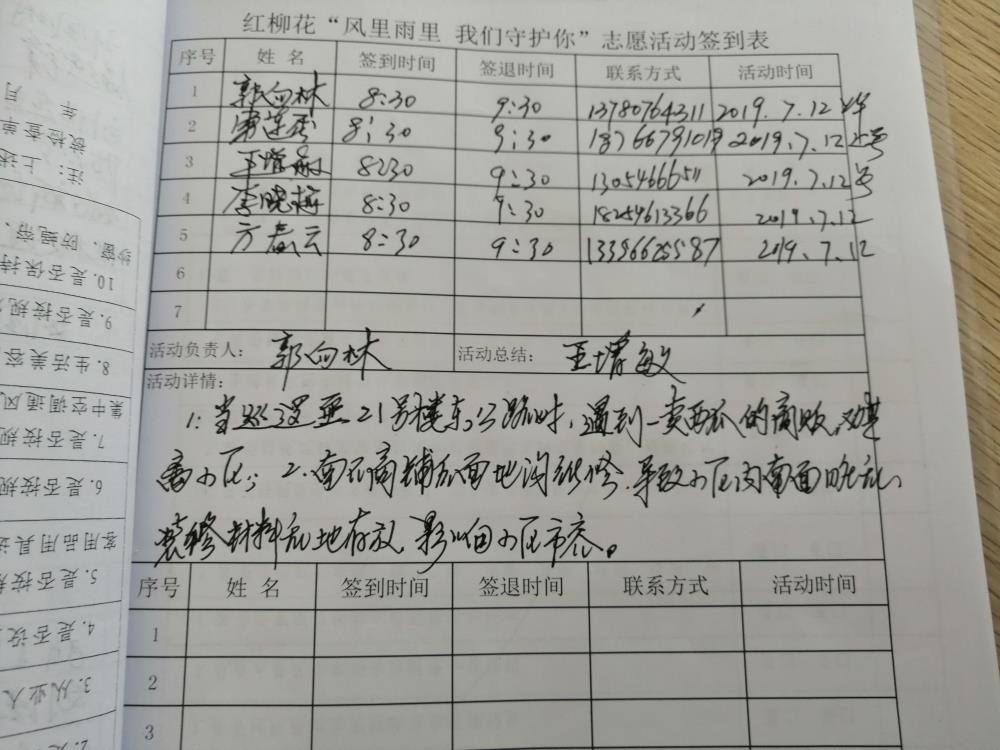 红柳花“风里雨里 我们守护你”志愿活动签到表
序号 姓名 签到时间 签退时间 联系方式 活动时间
1 郭向林 8:30 9:30 13780764311 2019.7.12
2 8:30 9:30 18766791019 2019.7.12
3 王增敏 8:30 9:30 1305466651 2019.7.12
4 李晓梅 8:30 9:30 18254613366 2019.7.12
5 方春云 8:30 9:30 2019.7.12
6
7
活动负责人: 郭向林 活动总结: 王增敏
活动详情:
1: 当巡逻至21号楼东,公路时,遇到一卖西瓜的商贩,劝其
离小区; 2. 南区商铺后面地沟维修,导致小区内南面
装修材料乱地存放,影响小区市容。
序号 姓名 签到时间 签退时间 联系方式 活动时间
1
2
3
年 月
被检查单
注:上述
纱窗、防蝇帘、
10.是否保持
9.是否按规
8.生活美容
集中空调通风
7.是否按规
6.是否按规
客用品用具
5.是否按
4.是否设
3.从业人